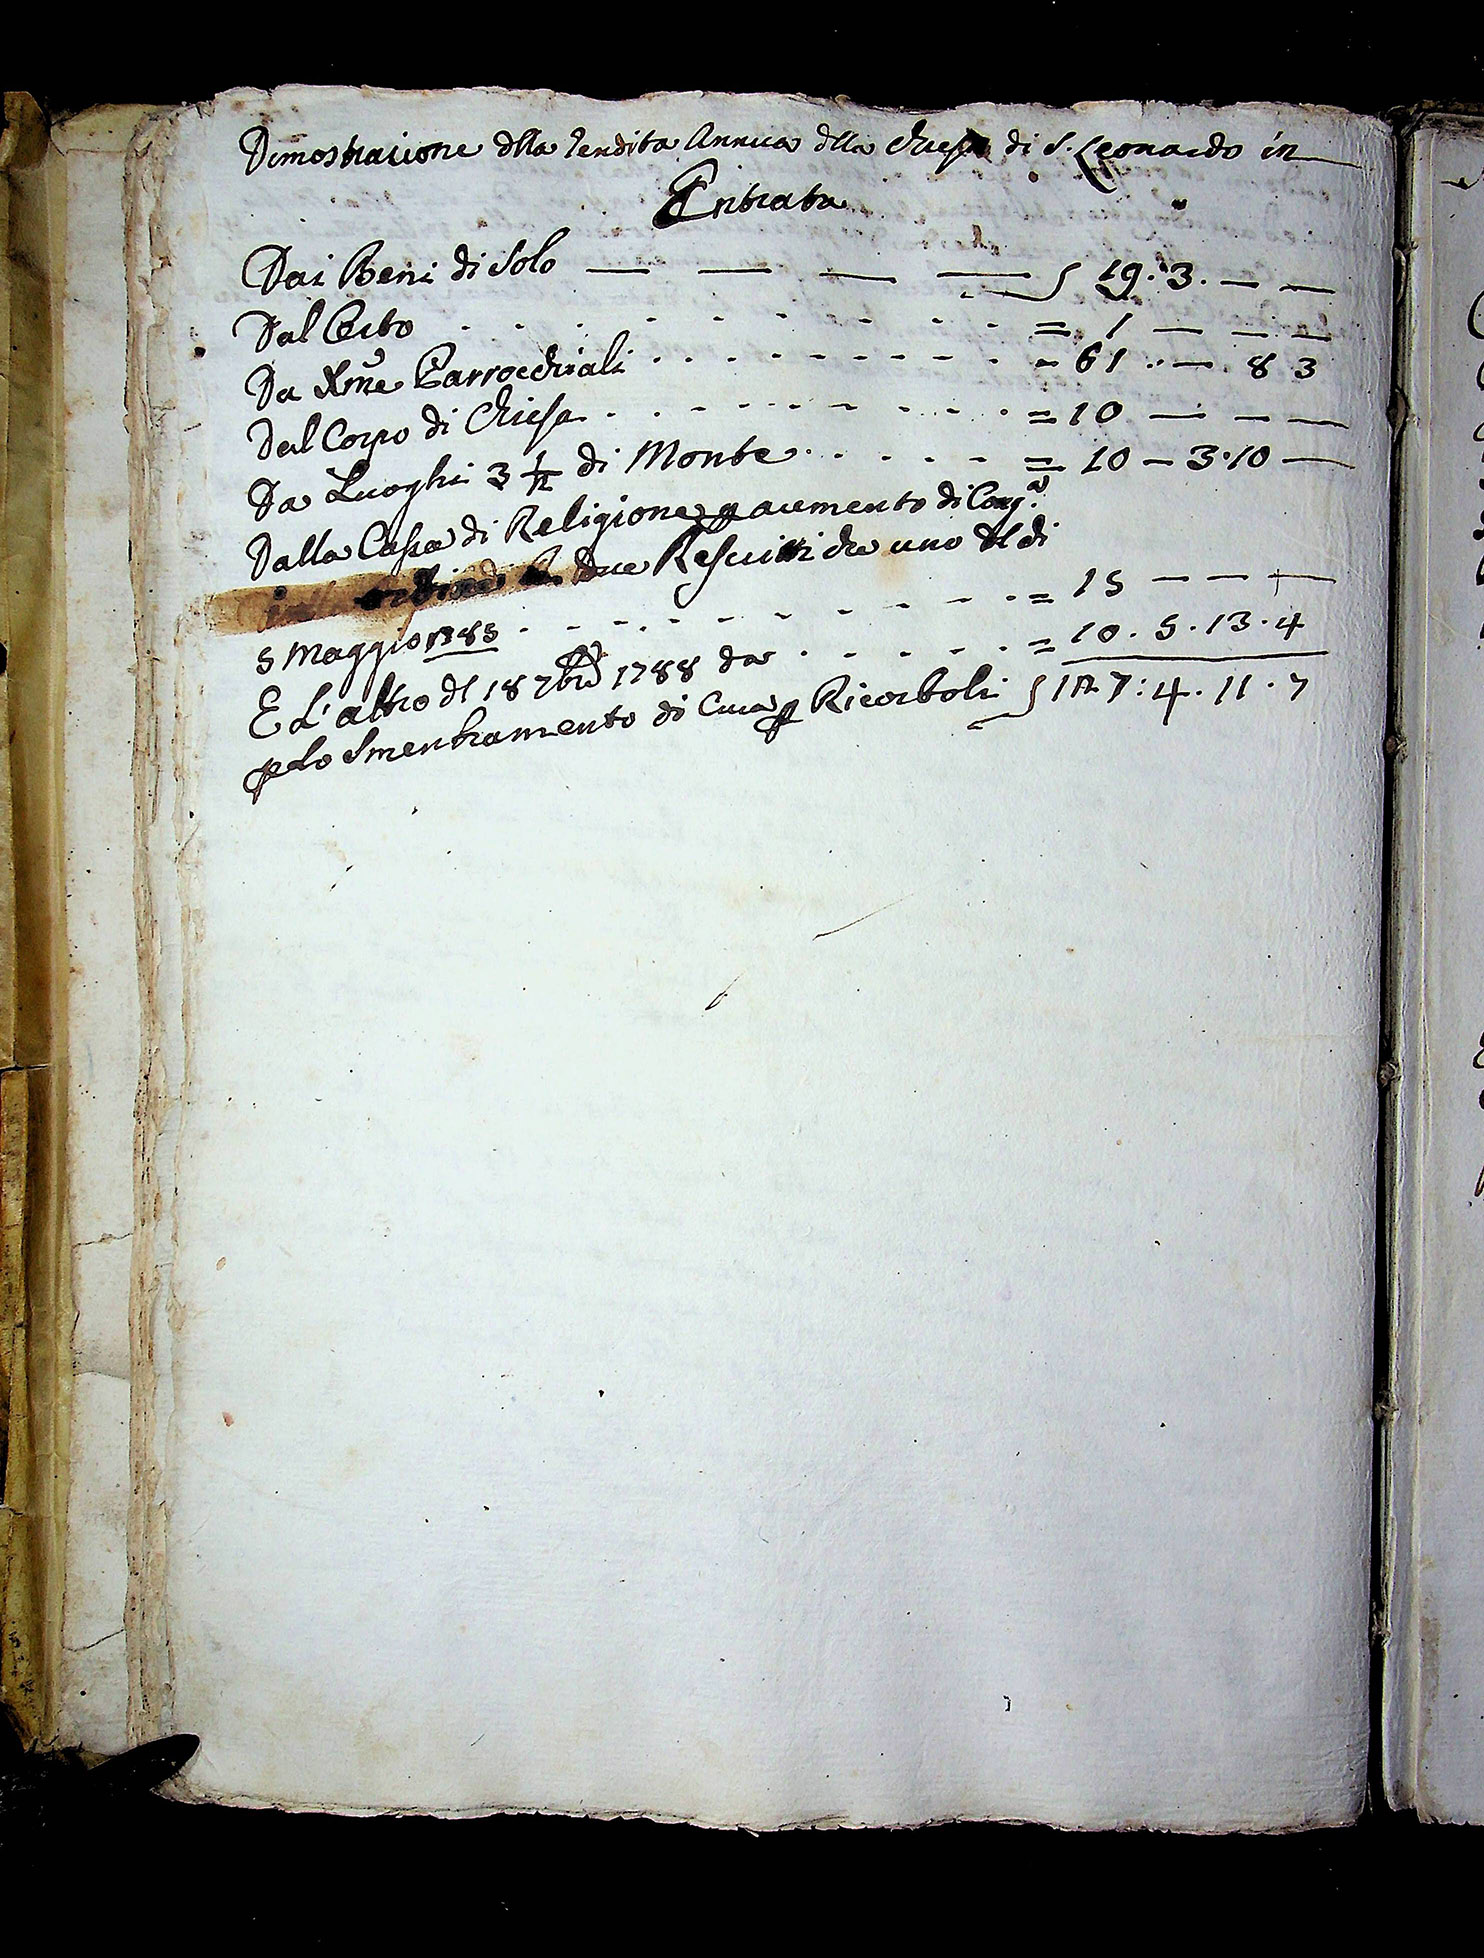 Dimostrazione dlla rendita Annua dlla Chiesa di S. Leonardo in
Entrata
Dai Beni di Solo — — — — ∫ 19. 3. — —
Dal Certo . . . . . . . . . . = 1 — — —
Da Xme Parrocchiali . . . . . . . . . = 61 .. — . 8 3
Dal Corpo di Chiesa . . . . . . . . . = 10 — — —
Da Luoghi 3 1/2 di Monte . . . . . . = 10 — 3. 10 —
Dalla Cassa di Religione p aumento di Cong.a
due Rescritti che uno del di
5 Maggio 1785 . . . . . . . . . . = 15 — — —
E L'altro dl 18 7bre 1788 da . . . . . = 10 . 5 . 13 . 4
p lo Smembramento di Cura p Ricorboli ∫ 127 : 4 . 11 . 7